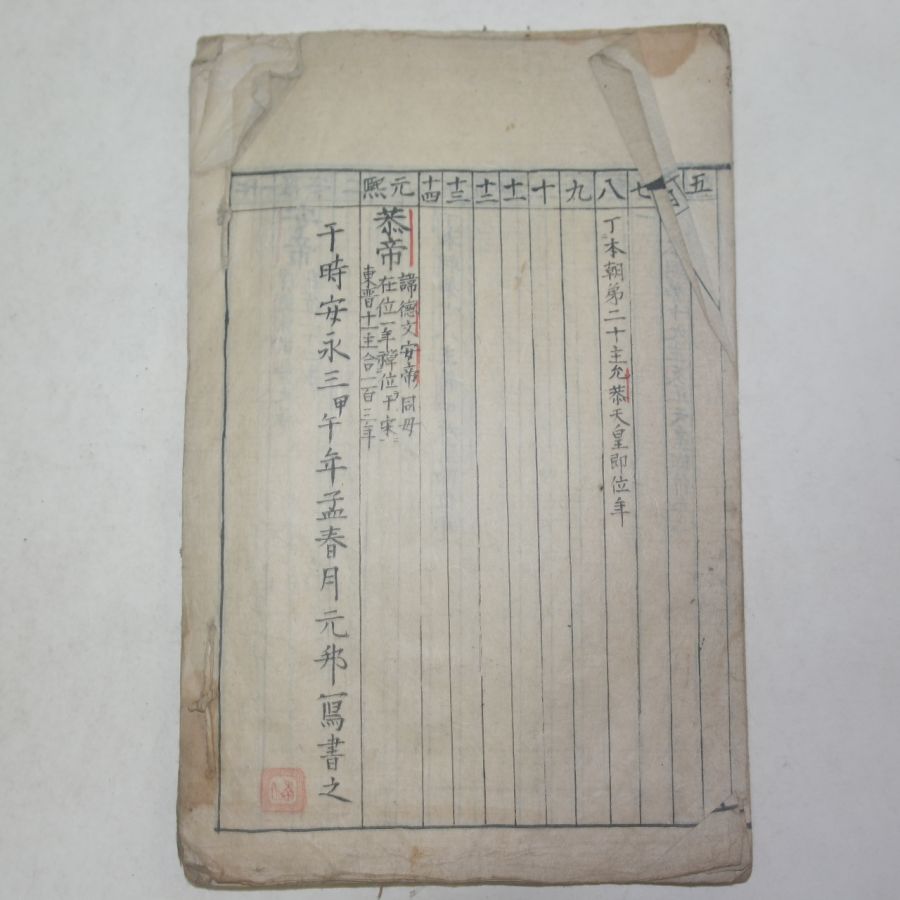 五
七
八
丁本朝弟二十主允恭天皇即位年
九
十
十一
十二
十三
十四
元熙
恭帝
諱德文安帝同母
在位一年禪位于宋
東晋十一主合一百三年
于時安永三甲午年孟春月元邦寫書之